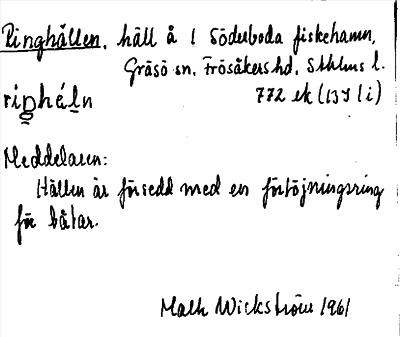 Ringhällen, häll å l Söderboda fiskehamn,
Gräsö sn. Frösåkers hd. Sthlms l.
772 ek (13I li)
Meddelaren:
Hällen är försedd med en förtöjningsring
för båtar.
Malk Wickström 1961